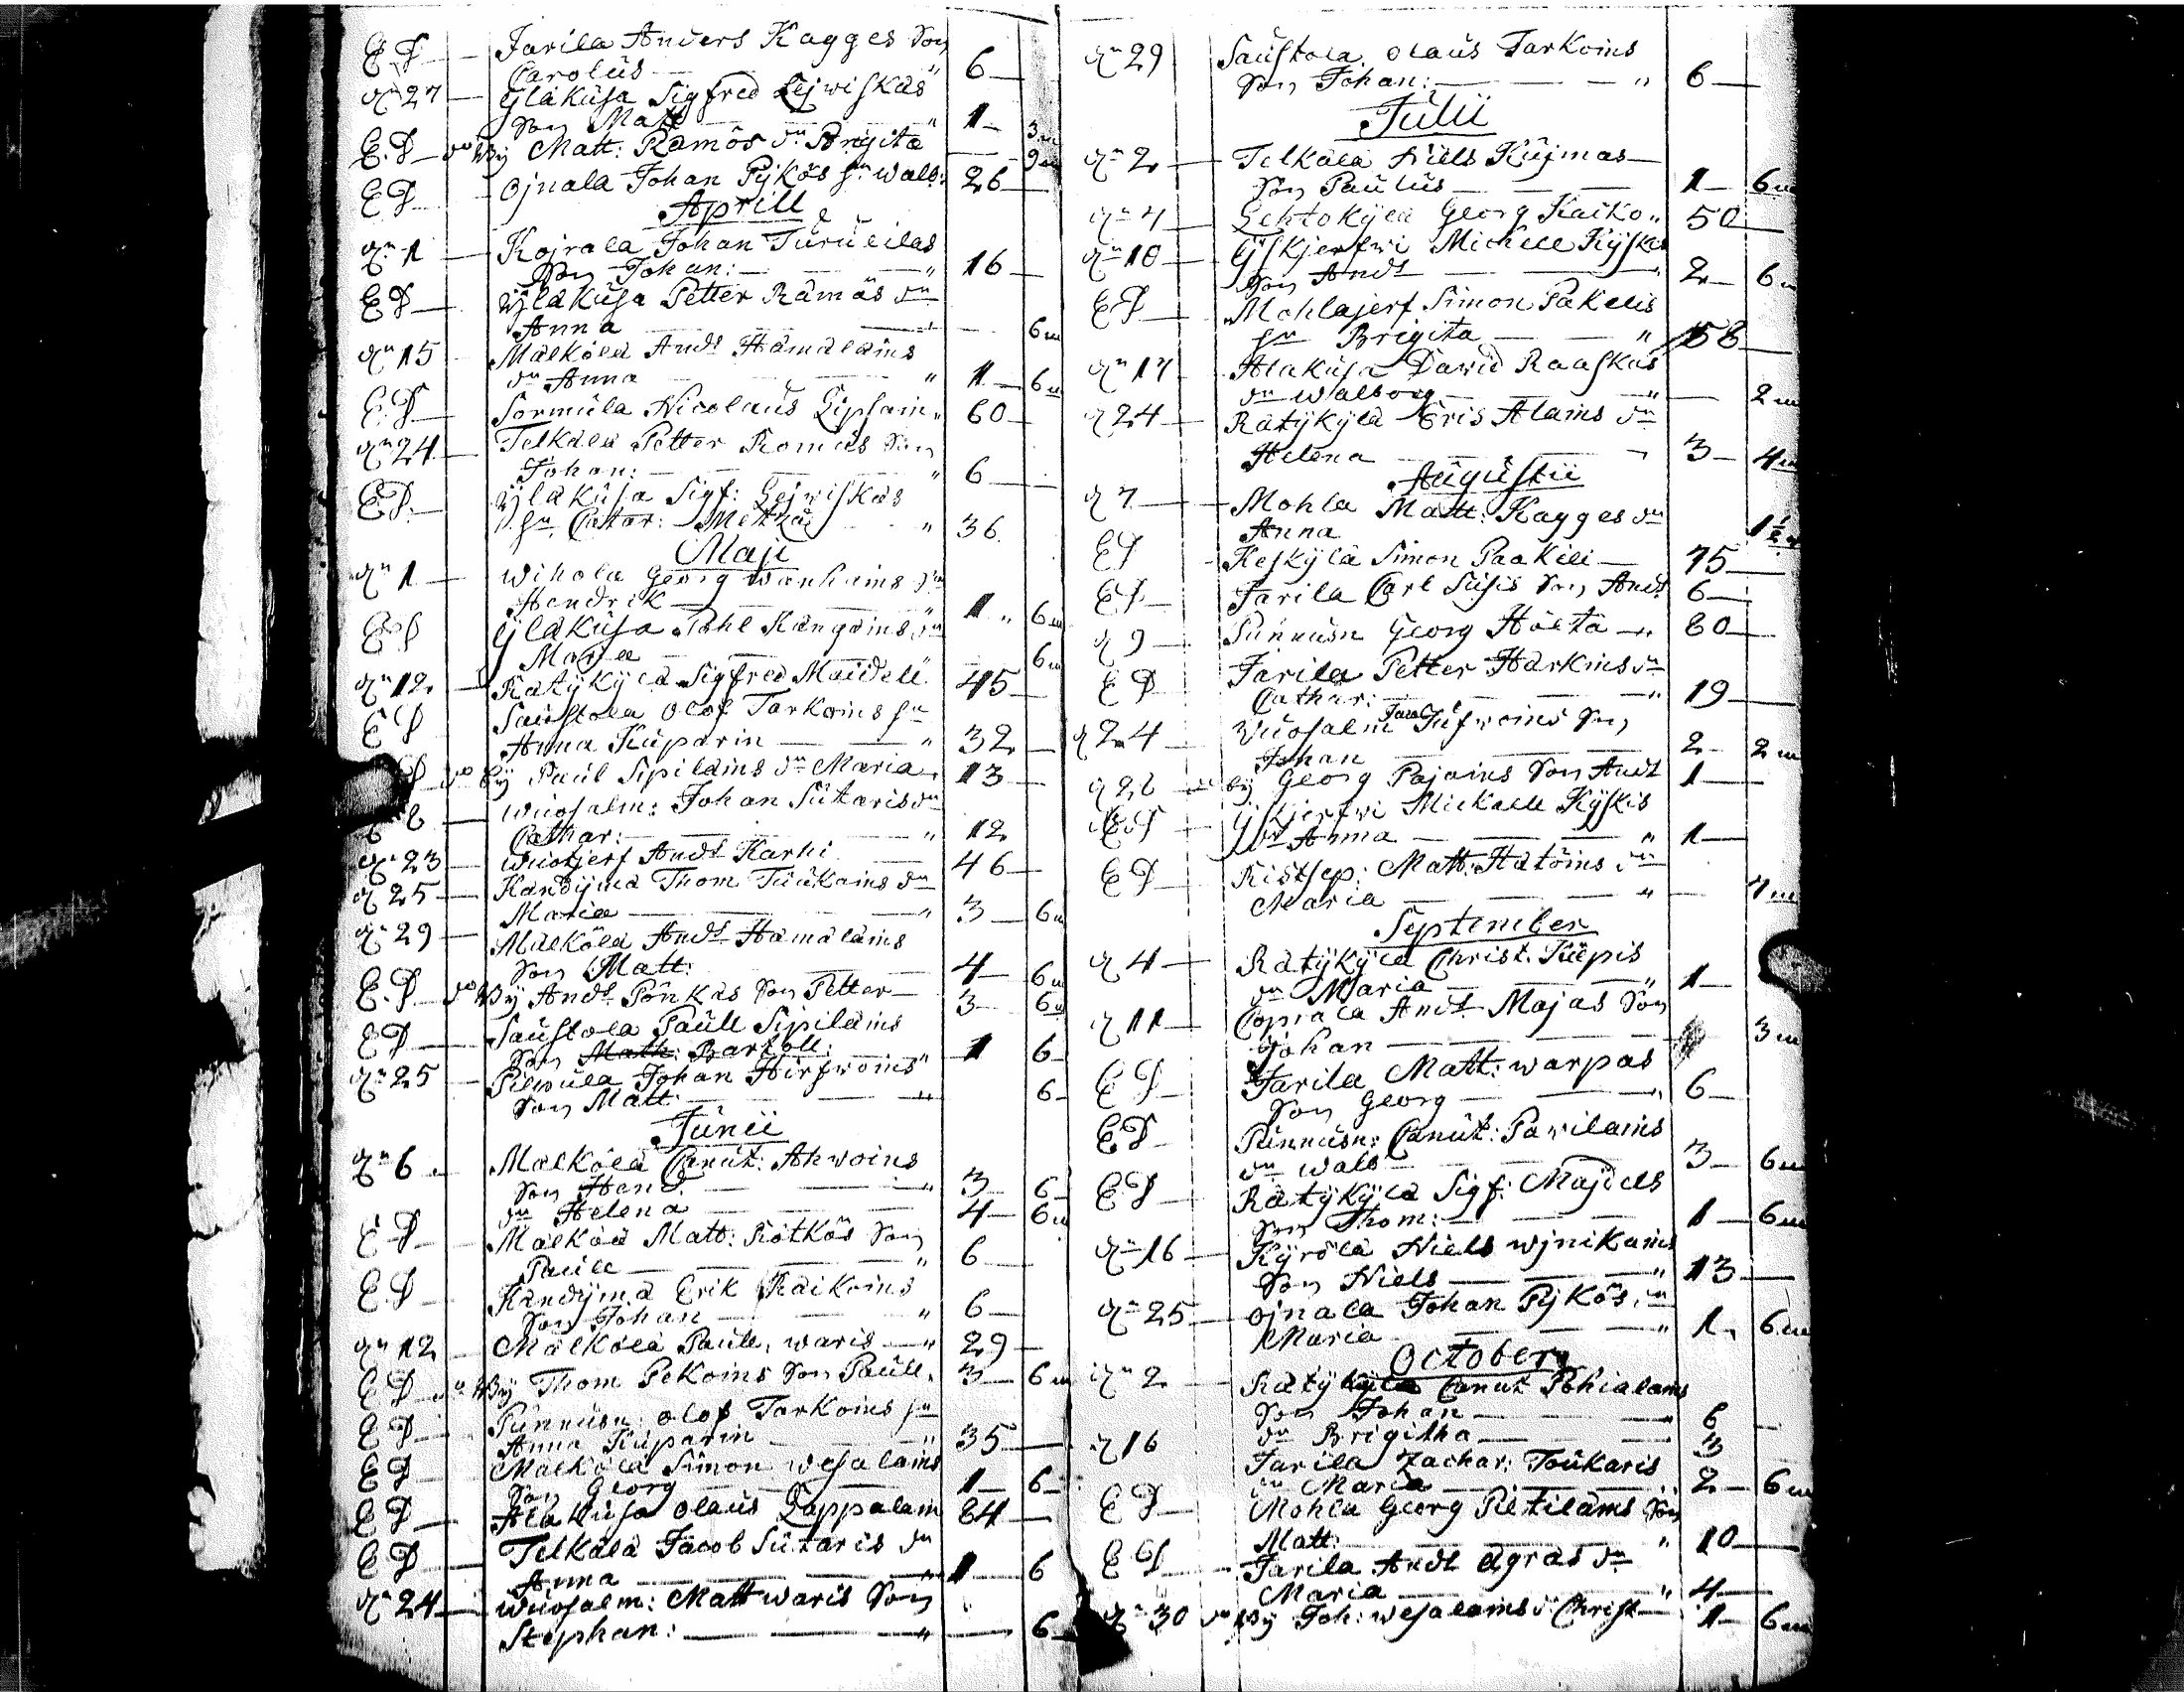 E D — Jarila Anders Kagges Son
Carolus — " 6 —
dn 27 — Yläkusa Sigfred Lejwiskas
Son Matt — " 1 — 3 m
E. D — do By Matt: Rämös dr Brigita — 9 m
E D — Ojnala Johan Pÿkös hu Walb: 26 —
Aprill
dn 1 — Kojrala Johan Turuleilas
Son Johan: — " 16 —
E D — Yläkusa Petter Rämös dr
Anna — 6 m
dn 15 — Mälkölä Andr Hämäläins
dr Anna — " 1 — 6 m
E. D — Sormula Nicolaus Lipsain " 60 —
dn 24 — Telkälä Petter Romus Son
Johan: — " 6 —
E D. — Yläkusa Sigf: Lejwiskas
hu Catar: " 36.
Maji
dn 1 — Wihola Georg Wanhains Son
Hendrik — " 1 " 6 m
E D Yläkusa Pohl Kangains dr
Maria — 6 m
dn 12 — Rätÿkÿlä Sigfred Maidell " 45 —
E D Saustola Olof Tarkoins hu
Anna Kuparin — " 32 —
E D do by Paul Sipiläins dr Maria 13 —
E D — Wuosalm: Johan Sutaris dr
Cathar: — " 12
dn 23 — Wuotjerf Andr Karhi — 46 —
d 25 — Kandÿma Thom Tuukains dr
Maria — " 3 — 6 m
dn 29 — Mälkölä Andr Hämäläins
Son Matt: — 4 — 6 m
E. D — do By Andr Pönkäs Son Petter — 3 — 6 m
E D — Saustola Paull Sipiläins
Son Matt: Bartoll: — 1 6 —
dn 25 — Pilpula Johan Hirfwoins "
Son Matt — " 6 —
Junii
dn 6 — Mälkölä Canut: Ahwoins
Son Hend. — " 3 — 6 —
dr Helena — 4 — 6 m
E D — Mälkölä Matt: Rötkös Son
Paull — " 6 —
E D — Kandÿma Erik Raikoins
Son Johan — " 6 —
dn 12 — Mälkölä Paull Waris — " 29 —
E D — do By Thom Pekoins Son Paull. 3 — 6 m
E D — Punnusu: Olof Tarkoins hu
Anna Kuparin — " 35 —
E D — Mälkölä Simon Wesalains
Son Georg — 1 — 6 —
E D — Alakusa Olaus Lappalain 84 —
E D — Telkälä Jacob Sutaris dr
Anna — " 1 — 6
dn 24 — Wuosalm: Matt Waris Son
Stephan: — " — 6 —
dn 29 Saustola Olaus Tarkoins
Son Johan: — " 6 —
Julii
dn 2 — Telkälä Niels Kujmas —
Son Paulus — 1 — 6 m
dn 4 — Lehtokÿlä Georg Kaiko " 50 —
dn 10 — Yskjerfwi Michell Kÿskis
Son Andr — 2 — 6 m
E D — Mohlajerf Simon Pakelis
hu Brigita — " 58 —
dn 17 — Alakusa Dawid Raaskas
dr Walborg — " — 2 m
d 24 — Rätÿkÿlä Eris Alains dr
Helena — 3 — 4 m
Augustii
d 7 — Mohla Matt: Kagges dr
Anna 1½ m
E D — Keskÿlä Simon Paakeli — 75 —
E D — Jarila Carl Susis Son Andr 6 —
d 9 — Punnusu Georg Hältä — " 80 —
E D — Jarila Petter Harkins dr
Cathar: — " 19 —
d 24 — Wuosalm Jacob Tufwoins Son
Johan — 2 — 2 m
d 26 do by Georg Pajains Son Andr 1 —
E. D — Yskjerfwi Mickell Kÿskis
dr Anna — " 1 —
E D — Kistsep: Matt: Hätöins dr
Maria — " — 7 m
September
d 4 — Rätÿkÿlä Christ. Kuepis
dr Maria — " 1 —
d 11 — Coprala Andr Majas Son
Johan — 3 m
E D — Jarila Matt: Warpas
Son Georg — " 6 —
E D — Punnusu: Canut: Pawilains
dr Walb — 3 — 6 m
E D — Rätÿkÿlä Sigf: Majdels
Son Thom: — 1 — 6 m
dn 16 — Kÿrölä Niels Wjnikains
Son Niels — " 13 —
dn 25 — Ojnala Johan Pÿkös dr
Maria — " 1. 6 m
October
dn 2 — Rätÿkÿlä Canut Pohialains
Son Johan — " 6 —
dr Brigitha — 3
d 16 Jarila Zachar: Toukaris
dr Maria — 2 — 6 m
E D — Mohla Georg Piltiläins Son
Matt: — " 10 —
E D — Jarila Andr Ägräs dr
Maria — " 4 —
dn 30 do By Joh: Wesalains dr Christ — " 1 — 6 m